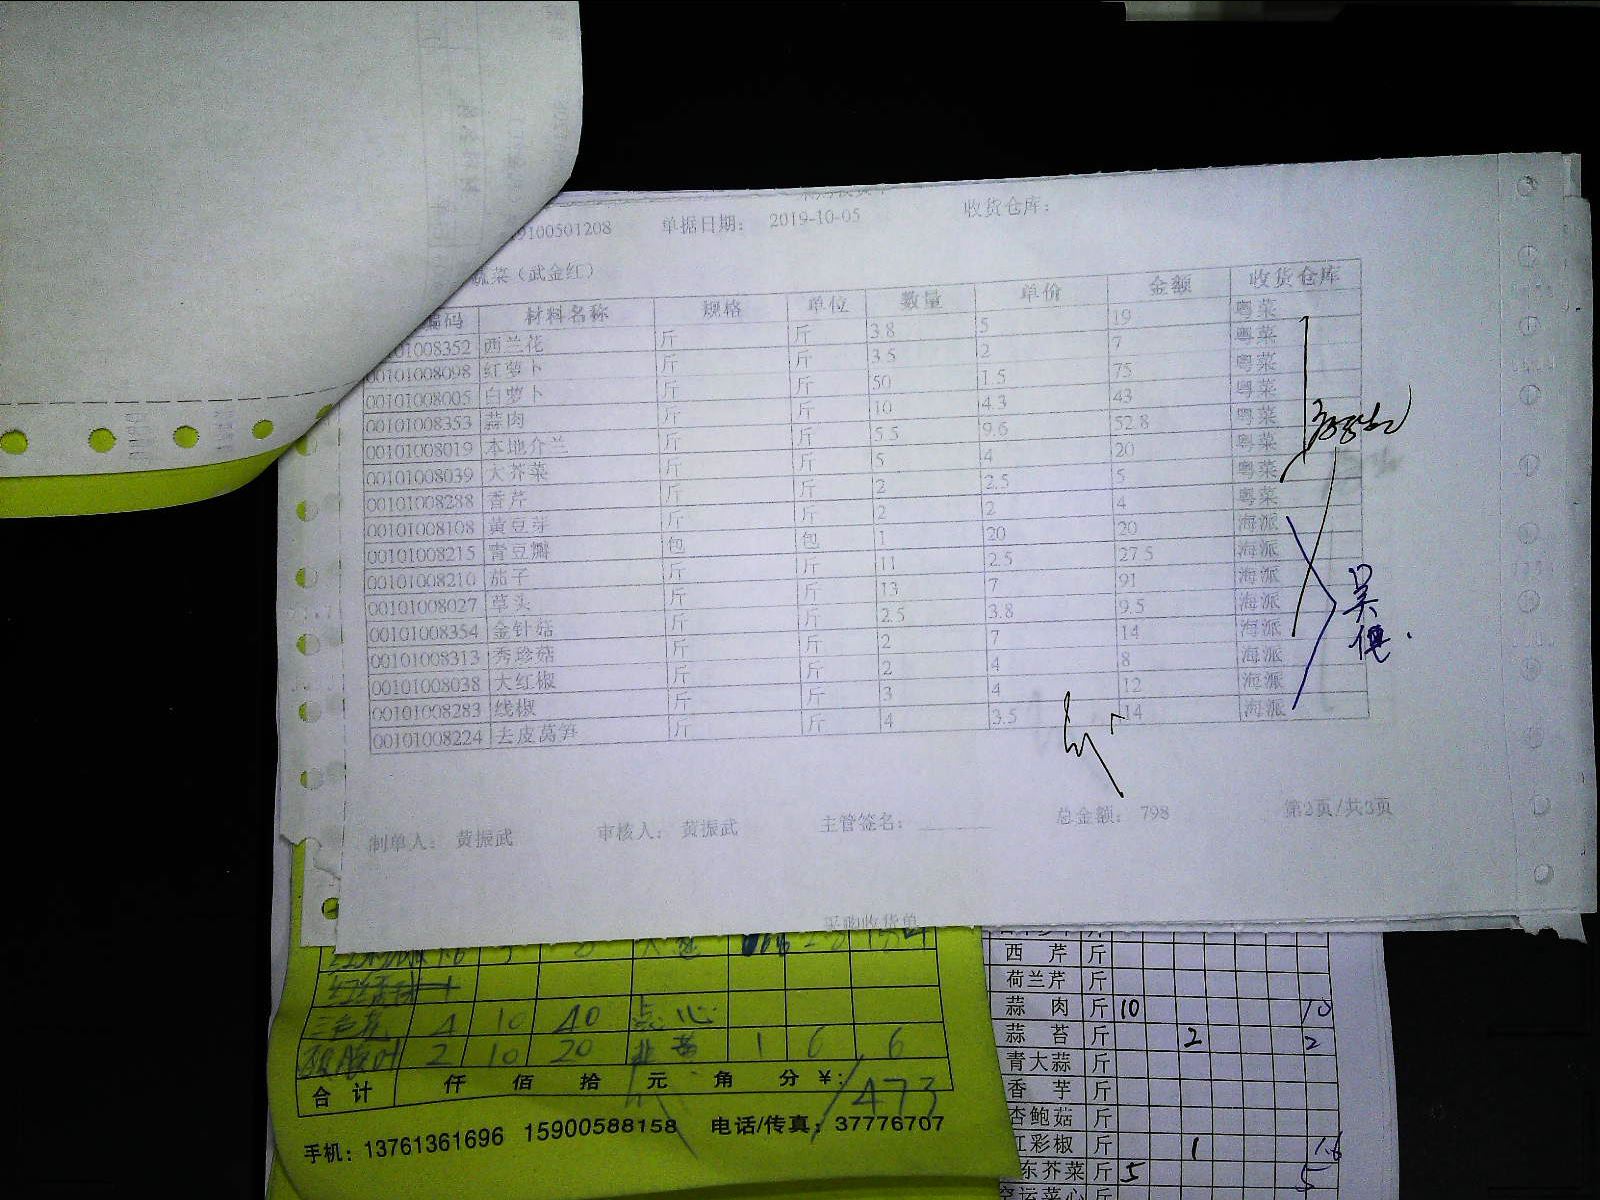 9100501208 单据日期： 2019-10-05 收货仓库：
蔬菜（武金红）
编码 材料名称 规格 单位 数量 单价 金额 收货仓库
00101008352 西兰花 斤 斤 3.8 5 19 粤菜
00101008098 红萝卜 斤 斤 3.5 2 7 粤菜
00101008005 白萝卜 斤 斤 50 1.5 75 粤菜
00101008353 蒜肉 斤 斤 10 4.3 43 粤菜
00101008019 本地介兰 斤 斤 5.5 9.6 52.8 粤菜
00101008039 大芥菜 斤 斤 5 4 20 粤菜
00101008288 香芹 斤 斤 2 2.5 5 粤菜
00101008108 黄豆芽 斤 斤 2 2 4 粤菜
00101008215 青豆瓣 包 包 1 20 20 海派
00101008210 茄子 斤 斤 11 2.5 27.5 海派
00101008027 草头 斤 斤 13 7 91 海派
00101008354 金针菇 斤 斤 2.5 3.8 9.5 海派
00101008313 秀珍菇 斤 斤 2 7 14 海派
00101008038 大红椒 斤 斤 2 4 8 海派
00101008283 线椒 斤 斤 3 4 12 海派
00101008224 去皮莴笋 斤 斤 4 3.5 14 海派
制单人： 黄振武 审核人： 黄振武 主管签名： 总金额： 798 第2页/共3页
采购收货单
4 10 40 点心
2 10 20 韭黄 1 6 6
合计 仟 佰 拾 元 角 分 ¥： 473
手机：13761361696 15900588158 电话/传真：37776707
西芹 斤
荷兰芹 斤
蒜肉 斤 10 10
蒜苔 斤 2 2
青大蒜 斤
香芋 斤
杏鲍菇 斤
红彩椒 斤 1 1.6
东芥菜 斤 5 5
空运菜心 斤